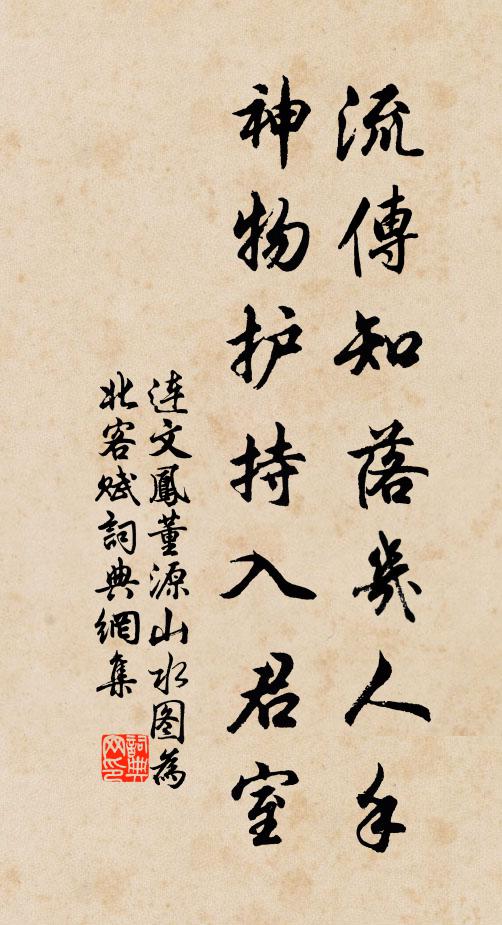 流傳知落幾人手
神物护持入君室
连文鳳董源山水图為
北客赋詞典網集
詞典网印